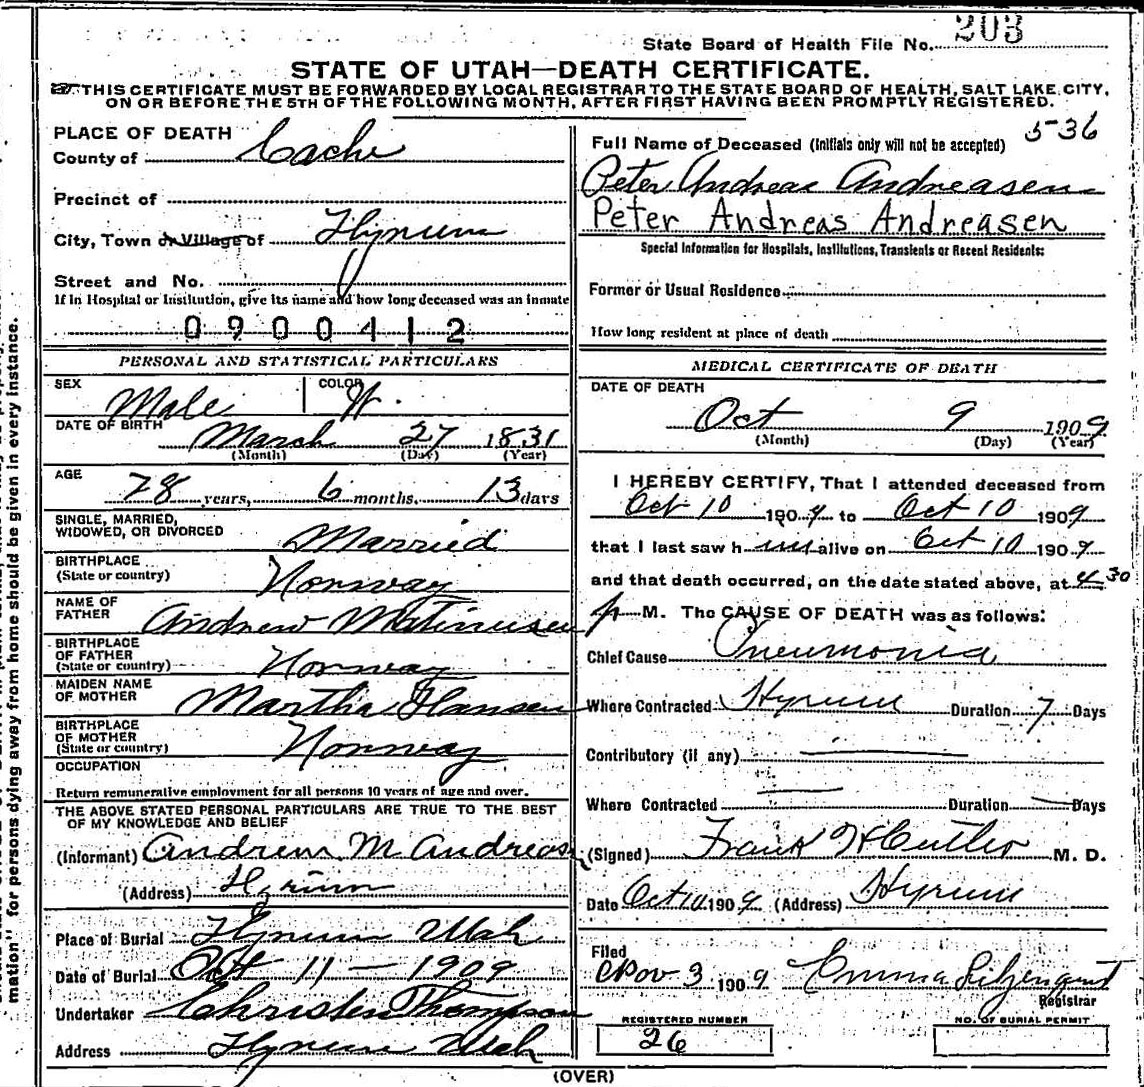 State Board of Health File No. 203
STATE OF UTAH—DEATH CERTIFICATE.
THIS CERTIFICATE MUST BE FORWARDED BY LOCAL REGISTRAR TO THE STATE BOARD OF HEALTH, SALT LAKE CITY,
ON OR BEFORE THE 5TH OF THE FOLLOWING MONTH, AFTER FIRST HAVING BEEN PROMPTLY REGISTERED.
PLACE OF DEATH
County of Cache
Precinct of
City, Town or Village of Hyrum
Street and No.
If in Hospital or Institution, give its name and how long deceased was an inmate
0900412
PERSONAL AND STATISTICAL PARTICULARS
SEX Male COLOR W.
DATE OF BIRTH March 27 1831
(Month) (Day) (Year)
AGE 78 years, 6 months. 13 days
SINGLE, MARRIED,
WIDOWED, OR DIVORCED Married
BIRTHPLACE
(State or country) Norway
NAME OF
FATHER Andrew Matinusen
BIRTHPLACE
OF FATHER
(State or country) Norway
MAIDEN NAME
OF MOTHER Martha Hansen
BIRTHPLACE
OF MOTHER
(State or country) Norway
OCCUPATION
Return remunerative employment for all persons 10 years of age and over.
THE ABOVE STATED PERSONAL PARTICULARS ARE TRUE TO THE BEST
OF MY KNOWLEDGE AND BELIEF
(Informant) Andrew M Andreasen
(Address) Hyrum
Place of Burial Hyrum Utah
Date of Burial Oct 11 — 1909
Undertaker Christen Thompson
Address Hyrum Utah
5-36
Full Name of Deceased (Initials only will not be accepted)
Peter Andreas Andreasen
Peter Andreas Andreasen
Special Information for Hospitals, Institutions, Transients or Recent Residents:
Former or Usual Residence
How long resident at place of death
MEDICAL CERTIFICATE OF DEATH
DATE OF DEATH
Oct 9 1909
(Month) (Day) (Year)
I HEREBY CERTIFY, That I attended deceased from
Oct 10 1909 to Oct 10 1909
that I last saw him alive on Oct 10 1909
and that death occurred, on the date stated above, at 4 30
p M. The CAUSE OF DEATH was as follows:
Chief Cause Pneumonia
Where Contracted Hyrum Duration 7 Days
Contributory (if any)
Where Contracted Duration Days
(Signed) Frank H Cutler M. D.
Date Oct 10 1909 (Address) Hyrum
Filed
Nov 3 1909 Emma Liljenquist
Registrar
REGISTERED NUMBER
26
NO. OF BURIAL PERMIT
(OVER)
mation" for persons dying away from home should be given in every instance.